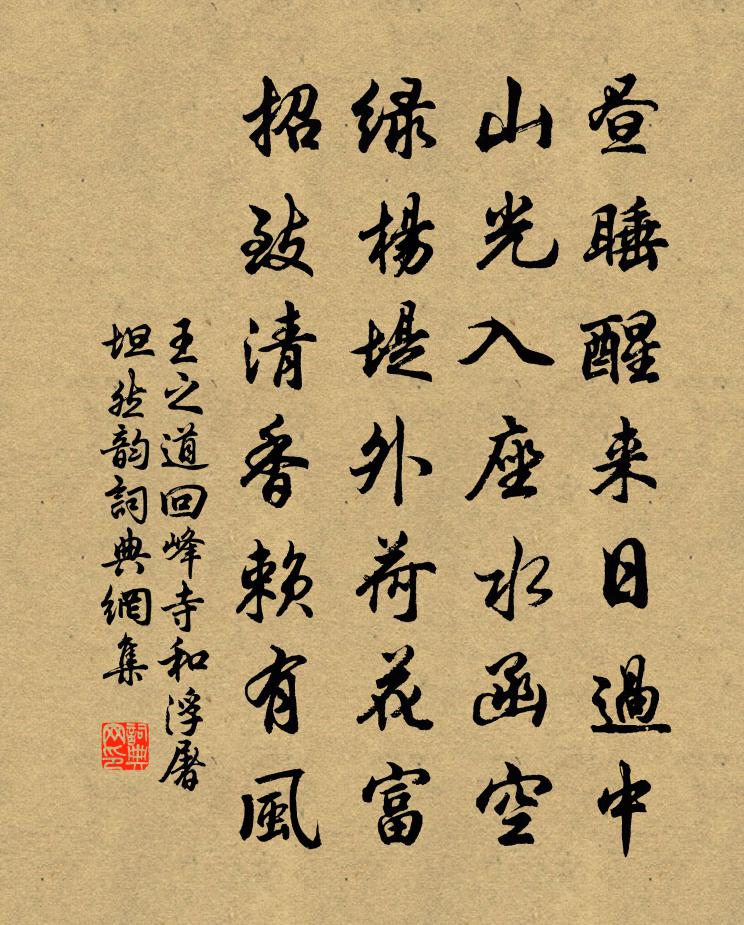 昼睡醒来日過中
山光入座水函空
緑楊堤外荷花富
招致清香賴有風
王之道回峰寺和浮屠
坦然韵詞典網集
詞典
网印